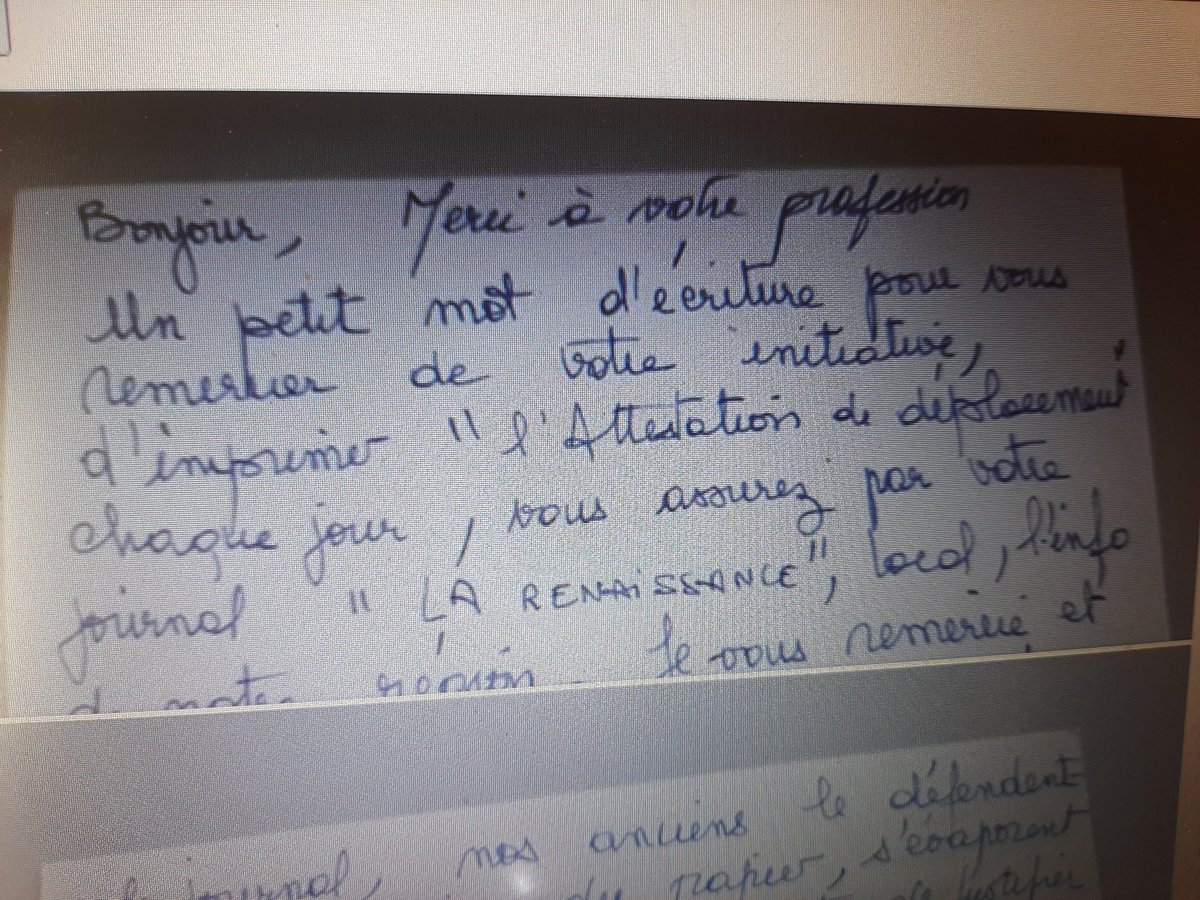 Bonjour, Merci à votre profession
Un petit mot d'écriture pour vous
remercier de votre initiative,
d'imprimer " l'Attestation de déplacement
chaque jour, vous assurez par votre
journal " LA RENAISSANCE", local, l'info
de notre région. Je vous remercie et
le journal, nos anciens le défendent
du papier, s'évaporent
justifier